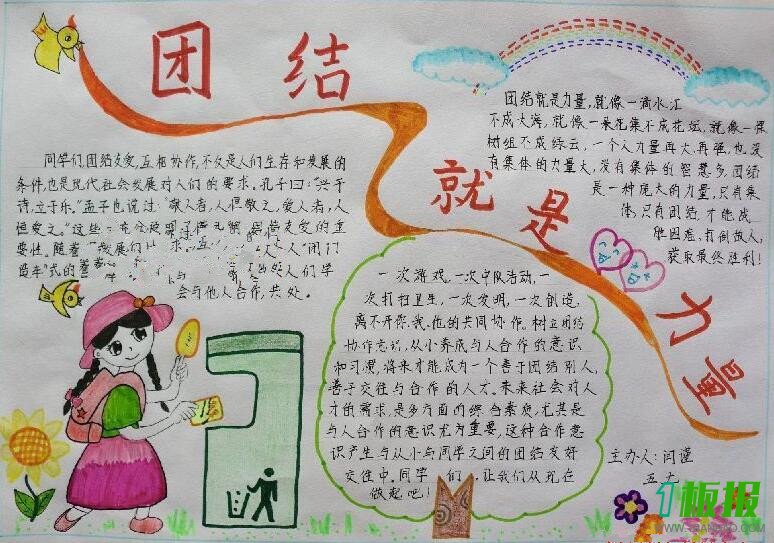 团结
就是
力量
同学们团结友爱,互相协作,不仅是人们生存和发展的
条件,也是现代社会发展对人们的要求。孔子曰:“兴于
诗,立于乐。”孟子也说过:“敬人者,人恒敬之,爱人者,人
恒爱之。”这些
友爱的重
要性。随着
发展
人”闭门
式的
人们学
会与他人合作,共处。
团结就是力量,就像一滴水汇
不成大海,就像一朵花集不成花坛,就像一棵
树组不成绿云,一个人力量再大,再强,也没
有集体的力量大,没有集体的智慧多,团结
是一种庞大的力量,只有集
体,只有团结,才能战
胜困难,打倒敌人,
获取最终胜利!
一次游戏,一次中队活动,一
次打扫卫生,一次发明,一次创造,
离不开你、我、他的共同协作。树立团结
协作意识,从小养成与人合作的意识
和习惯,将来才能成为一个善于团结别人,
善于交往与合作的人才。未来社会对人
才的需求,是多方面的综合素质,尤其是
与人合作的意识尤为重要,这种合作意
识产生与从小与同学之间的团结友好
交往中。同学们,让我们从现在
做起吧!
主办人:闫谨
五、七
板报